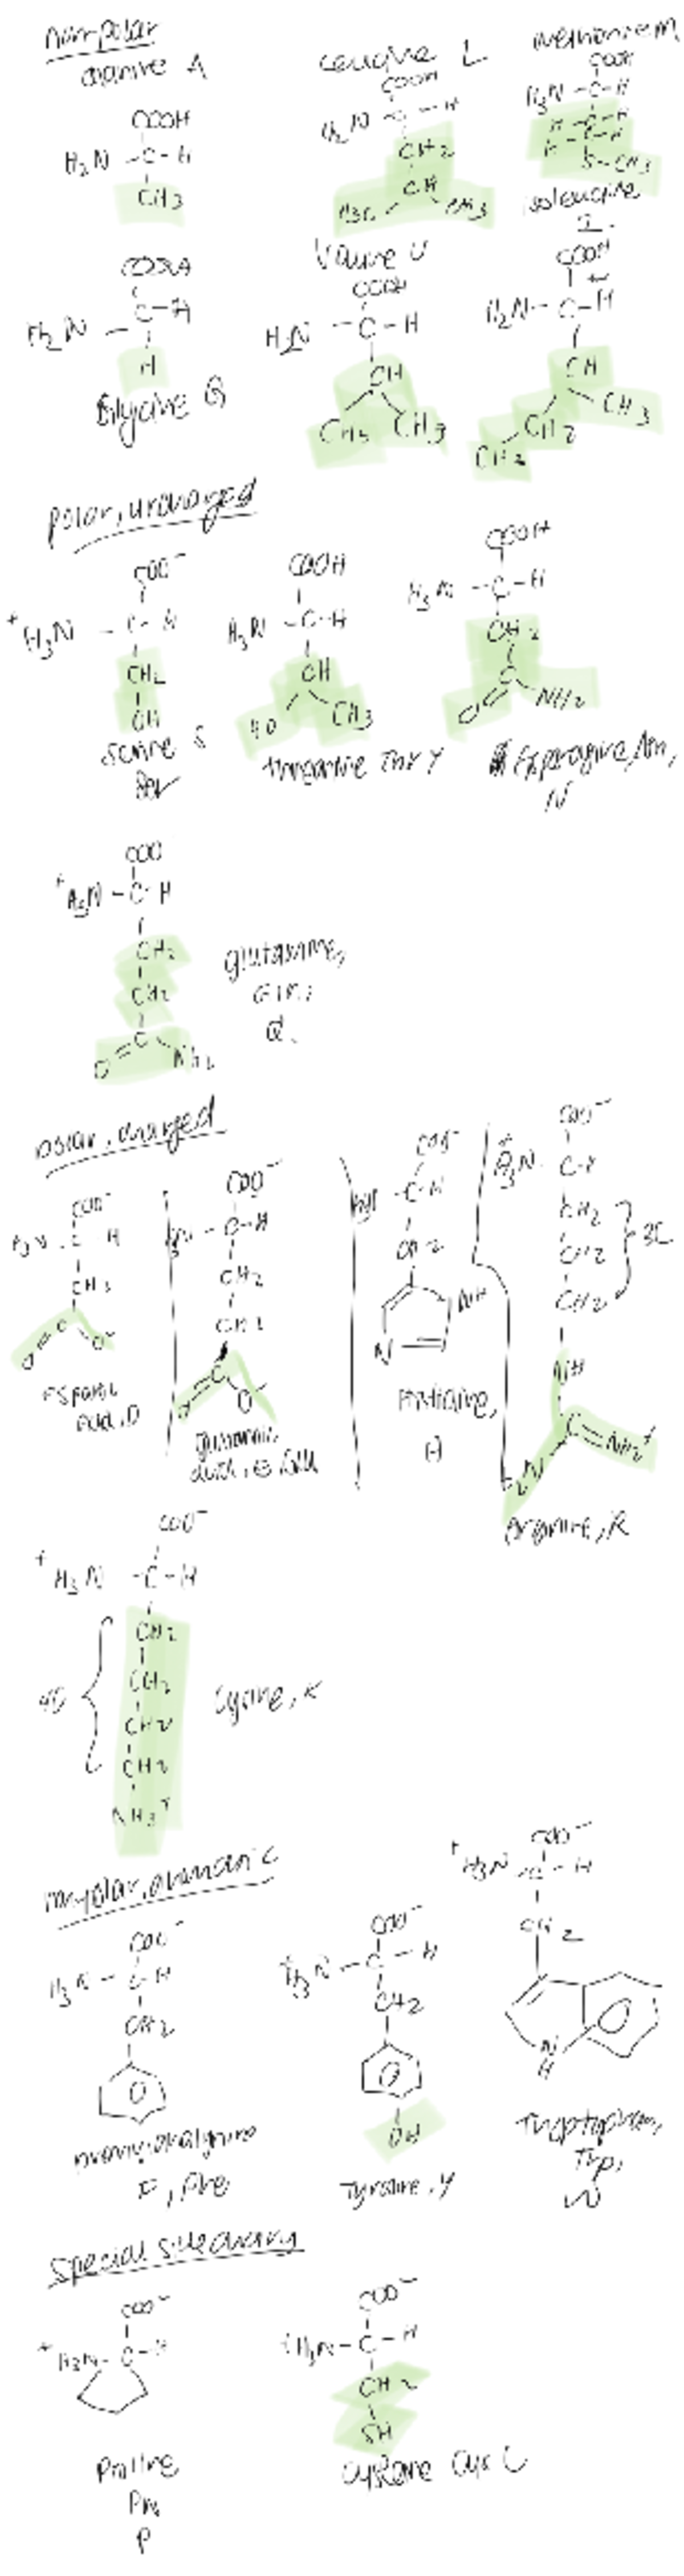 non-polar
alanine A
leucine L
methionine M
COOH
H2N -C-H
CH3
COOH
H2N C-H
CH2
CH
H3C CH3
COOH
H3N -C-H
H-C-H
H-C-H
S-CH3
isoleucine
I
COOH
H2N -C-H
H
Glycine G
Valine V
COOH
H2N -C-H
CH
CH3 CH3
COOH
H2N-C-H
CH
CH3
CH2
CH3
polar, uncharged
COO-
+H3N -C-H
CH2
OH
Serine S
Ser
COOH
H3N -C-H
CH
HO CH3
COOH
H3N -C-H
CH2
C
O NH2
N
COO
+H3N -C-H
CH2
CH2
C
O NH2
glutamine,
Gln,
Q
polar, charged
COO-
H3N C H
C
O O-
aspartic
acid, D
COO-
H3N -C-H
CH2
CH2
C
O O-
glutamic
acid, E Glu
COO-
H3N -C-H
CH2
NH
N
Histidine,
H
COO-
+H3N C-H
CH2
CH2
CH2
3C
NH
C=NH2+
H2N
arginine, R
COO-
+H3N -C-H
CH2
CH2
CH2
CH2
NH3+
4C
Lysine, K
non-polar, aromatic
COO-
H3N -C-H
CH2
phenylalanine
F, Phe
COO-
+H3N -C-H
CH2
OH
Tyrosine, Y
COO-
+H3N -C-H
CH2
N
H
Tryptophan,
Trp,
W
COO-
+H3N-C-H
Proline
Pro
P
COO-
+H3N-C-H
CH2
SH
Cysteine Cys C